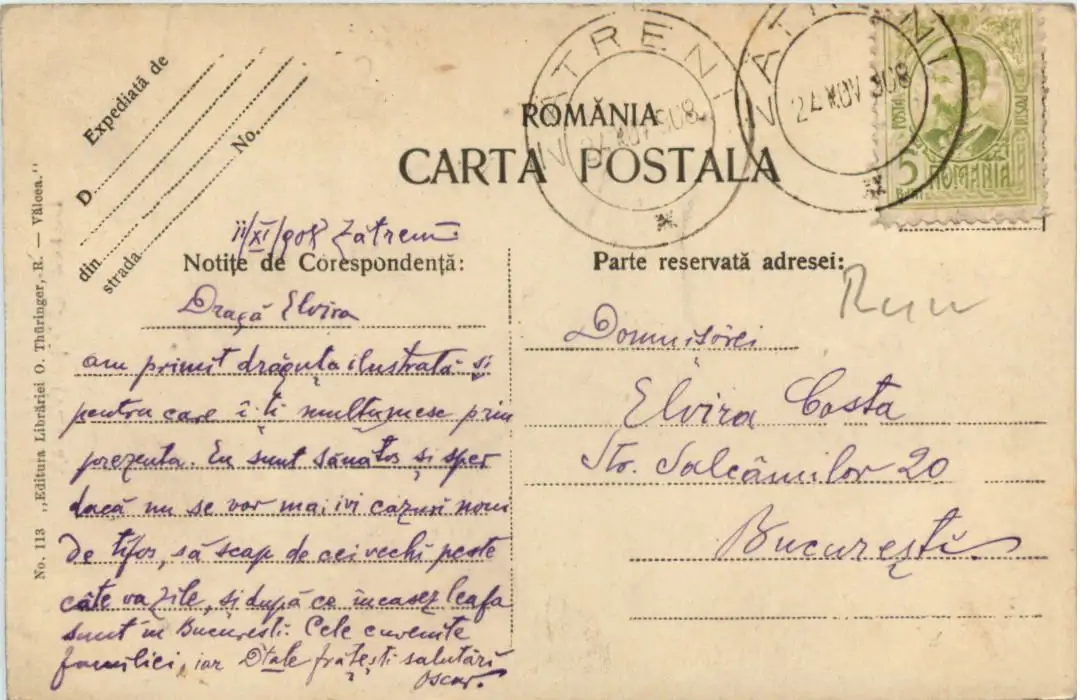 Expediată de
D
No.
din
strada
No. 113 „Editura Librăriei O. Thüringer, R. — Vâlcea."
ROMÂNIA
CARTA POSTALA
ZĂTRENI
24 NOV 908
ZĂTRENI
24 NOV 908
POSTA
5
ROMANIA
11/XI/908 Zătreni
Notițe de Corespondență:
Dragă Elvira
am primit drăguța ilustrată și
pentru care îți mulțumesc prin
prezenta. Eu sunt sănătos și sper
dacă nu se vor mai ivi cazuri noui
de tifos, să scap de cei vechi peste
câte va zile, și după ce încasez leafa
sunt in București. Cele cuvenite
familiei, iar D tale frățești salutări
Oscar.
Parte reservată adresei:
Domnișorei
Elvira Costa
Str. Salcâmilor 20
București